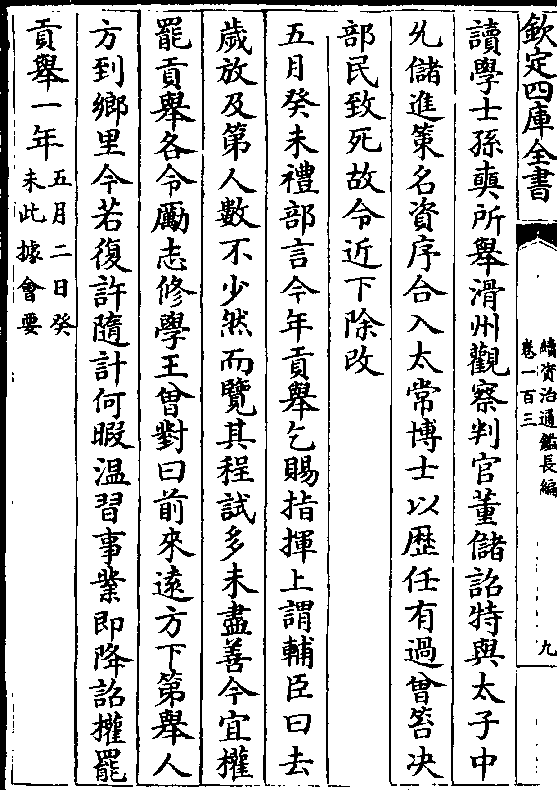 欽定四庫全書
續資治通鑑長編
卷一百三
九
讀學士孫奭所舉滑州觀察判官董儲詔特與太子中
允儲進策名資序合入太常博士以歴任有過曾笞决
部民致死故令近下除改
五月癸未禮部言今年貢舉乞賜指揮上謂輔臣曰去
歲放及第人數不少然而覽其程試多未盡善今宜權
罷貢舉各令勵志修學王曾對曰前來逺方下第舉人
方到鄉里今若復許隨計何暇温習事業即降詔權罷
貢舉一年五月二日癸
未此據會要